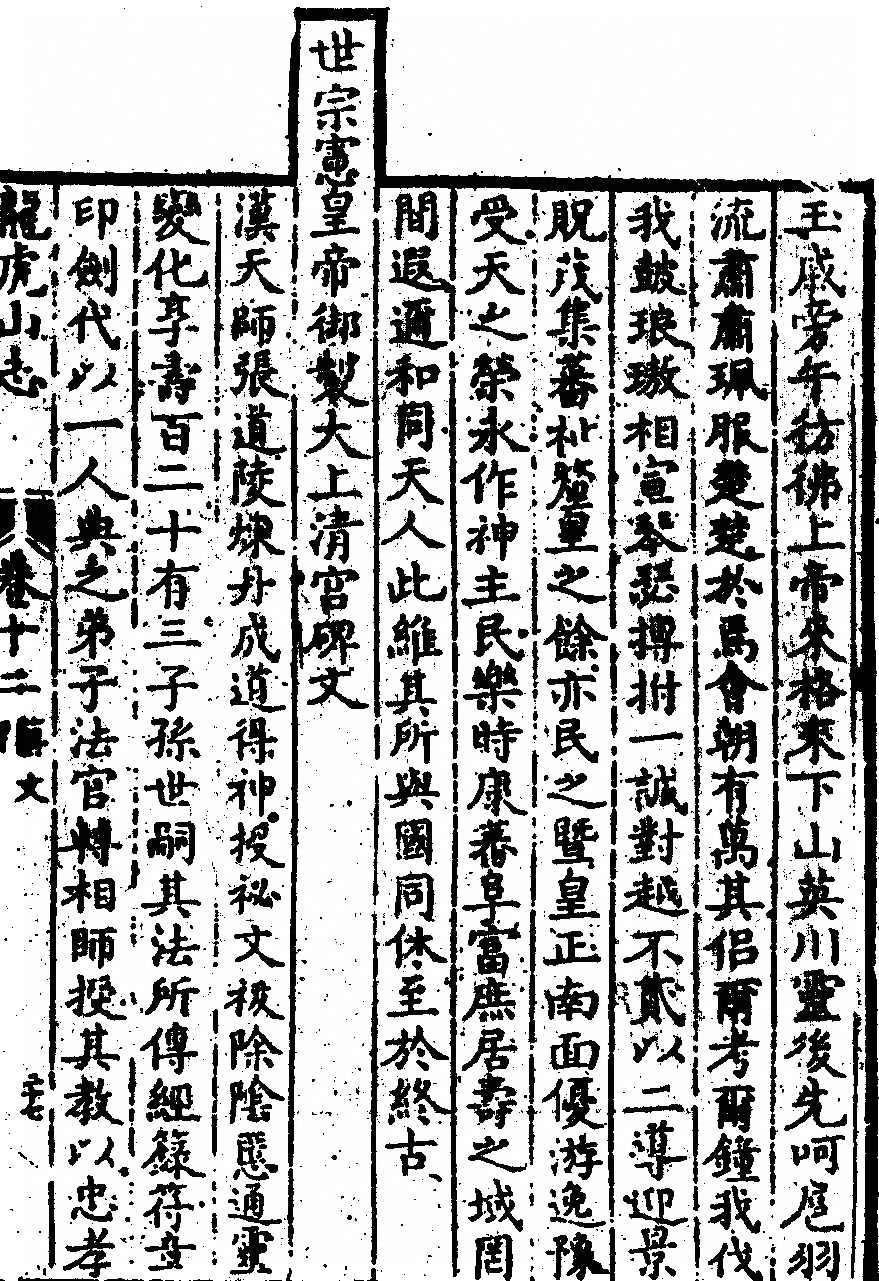 玉戚旁午彷彿上帝來格來下山英川靈後先呵扈羽
流肅肅珮服楚楚於焉會朝有萬其侶爾考爾鐘我伐
我鼓琅璈相宣琴瑟搏拊一誠對越不貳以二導迎景
貺茂集蕃祉釐皇之餘亦民之暨皇正南面優游逸豫
受天之榮永作神主民樂時康蕃阜富庶居壽之域罔
間遐邇和同天人此維其所與國同休至於終古
世宗憲皇帝御製大上清宮碑文
漢天師張道陵煉丹成道得神授祕文祓除陰慝通靈
變化享壽百二十有三子孫世嗣其法所傳經籙符章
印劍代以一人典之弟子法官轉相師授其教以忠孝
龍虎山志 卷十二 藝文 二十七